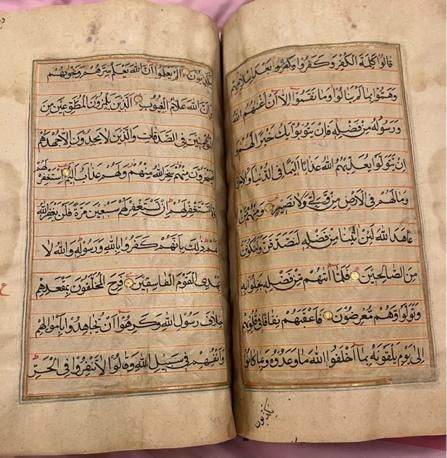 قالوا كلمة الكفر وكفروا بعد اسلامهم
وهموا بما لم ينالوا وما نقموا الا ان اغنيهم الله
ورسوله من فضله فان يتوبوا يك خيرا لهم
ان يتولوا يعذبهم الله عذابا اليما في الدنيا والاخرة
وما لهم في الارض من ولي ولا نصير ومنهم من
عاهد الله لئن اتينا من فضله لنصدقن ولنكونن
من الصالحين فلما اتيهم من فضله بخلوا به
وتولوا وهم معرضون فاعقبهم نفاقا في قلوبهم
الى يوم يلقونه بما اخلفوا الله ما وعدوه وبما كانوا
يكذبون
يكذبون الم يعلموا ان الله يعلم سرهم ونجويهم
وان الله علام الغيوب الذين يلمزون المطوعين من
المؤمنين في الصدقات والذين لا يجدون الا جهدهم
فيسخرون منهم سخر الله منهم ولهم عذاب اليم استغفر لهم
او لا تستغفر لهم ان تستغفر لهم سبعين مرة فلن يغفر الله
لهم ذلك بانهم كفروا بالله ورسوله والله لا
يهدي القوم الفاسقين فرح المخلفون بمقعدهم
خلاف رسول الله وكرهوا ان يجاهدوا باموالهم
وانفسهم في سبيل الله وقالوا لا تنفروا في الحر